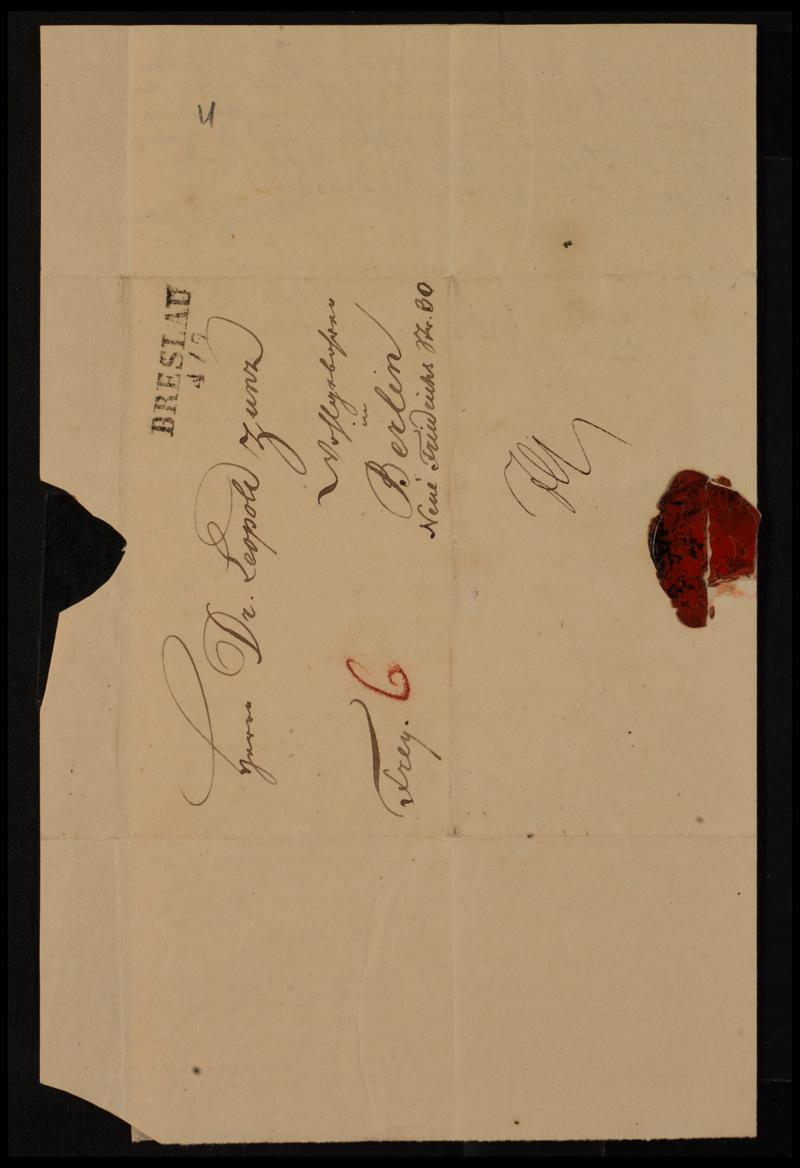 BRESLAU
4/7
Herrn Dr. Leopold Zunz
Wohlgebohren
in
Berlin
Neue Friedrichs Str. 30
Frey. 6